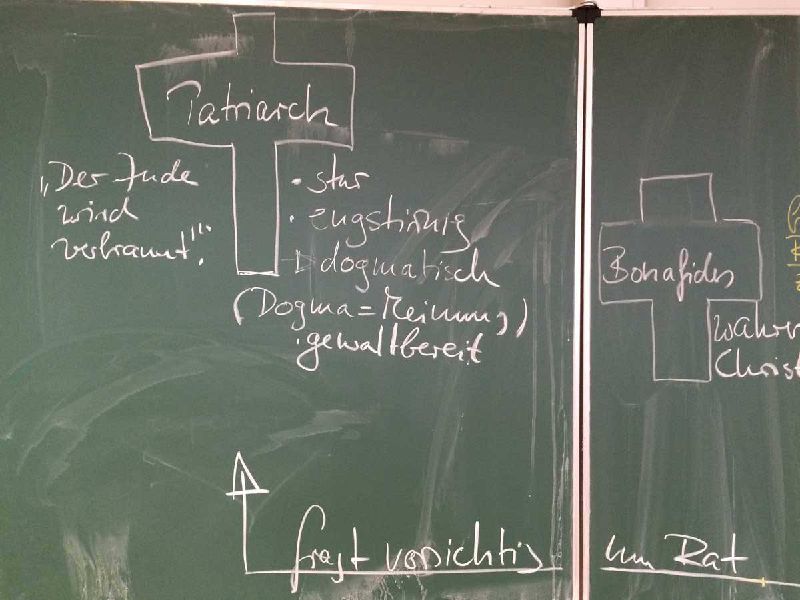 Patriarch
„Der Jude
wird
verbrannt".
• star
• engstirnig
dogmatisch
(Dogma = Meinung)
• gewaltbereit
Bonafides
Christ
fragt vorsichtig um Rat